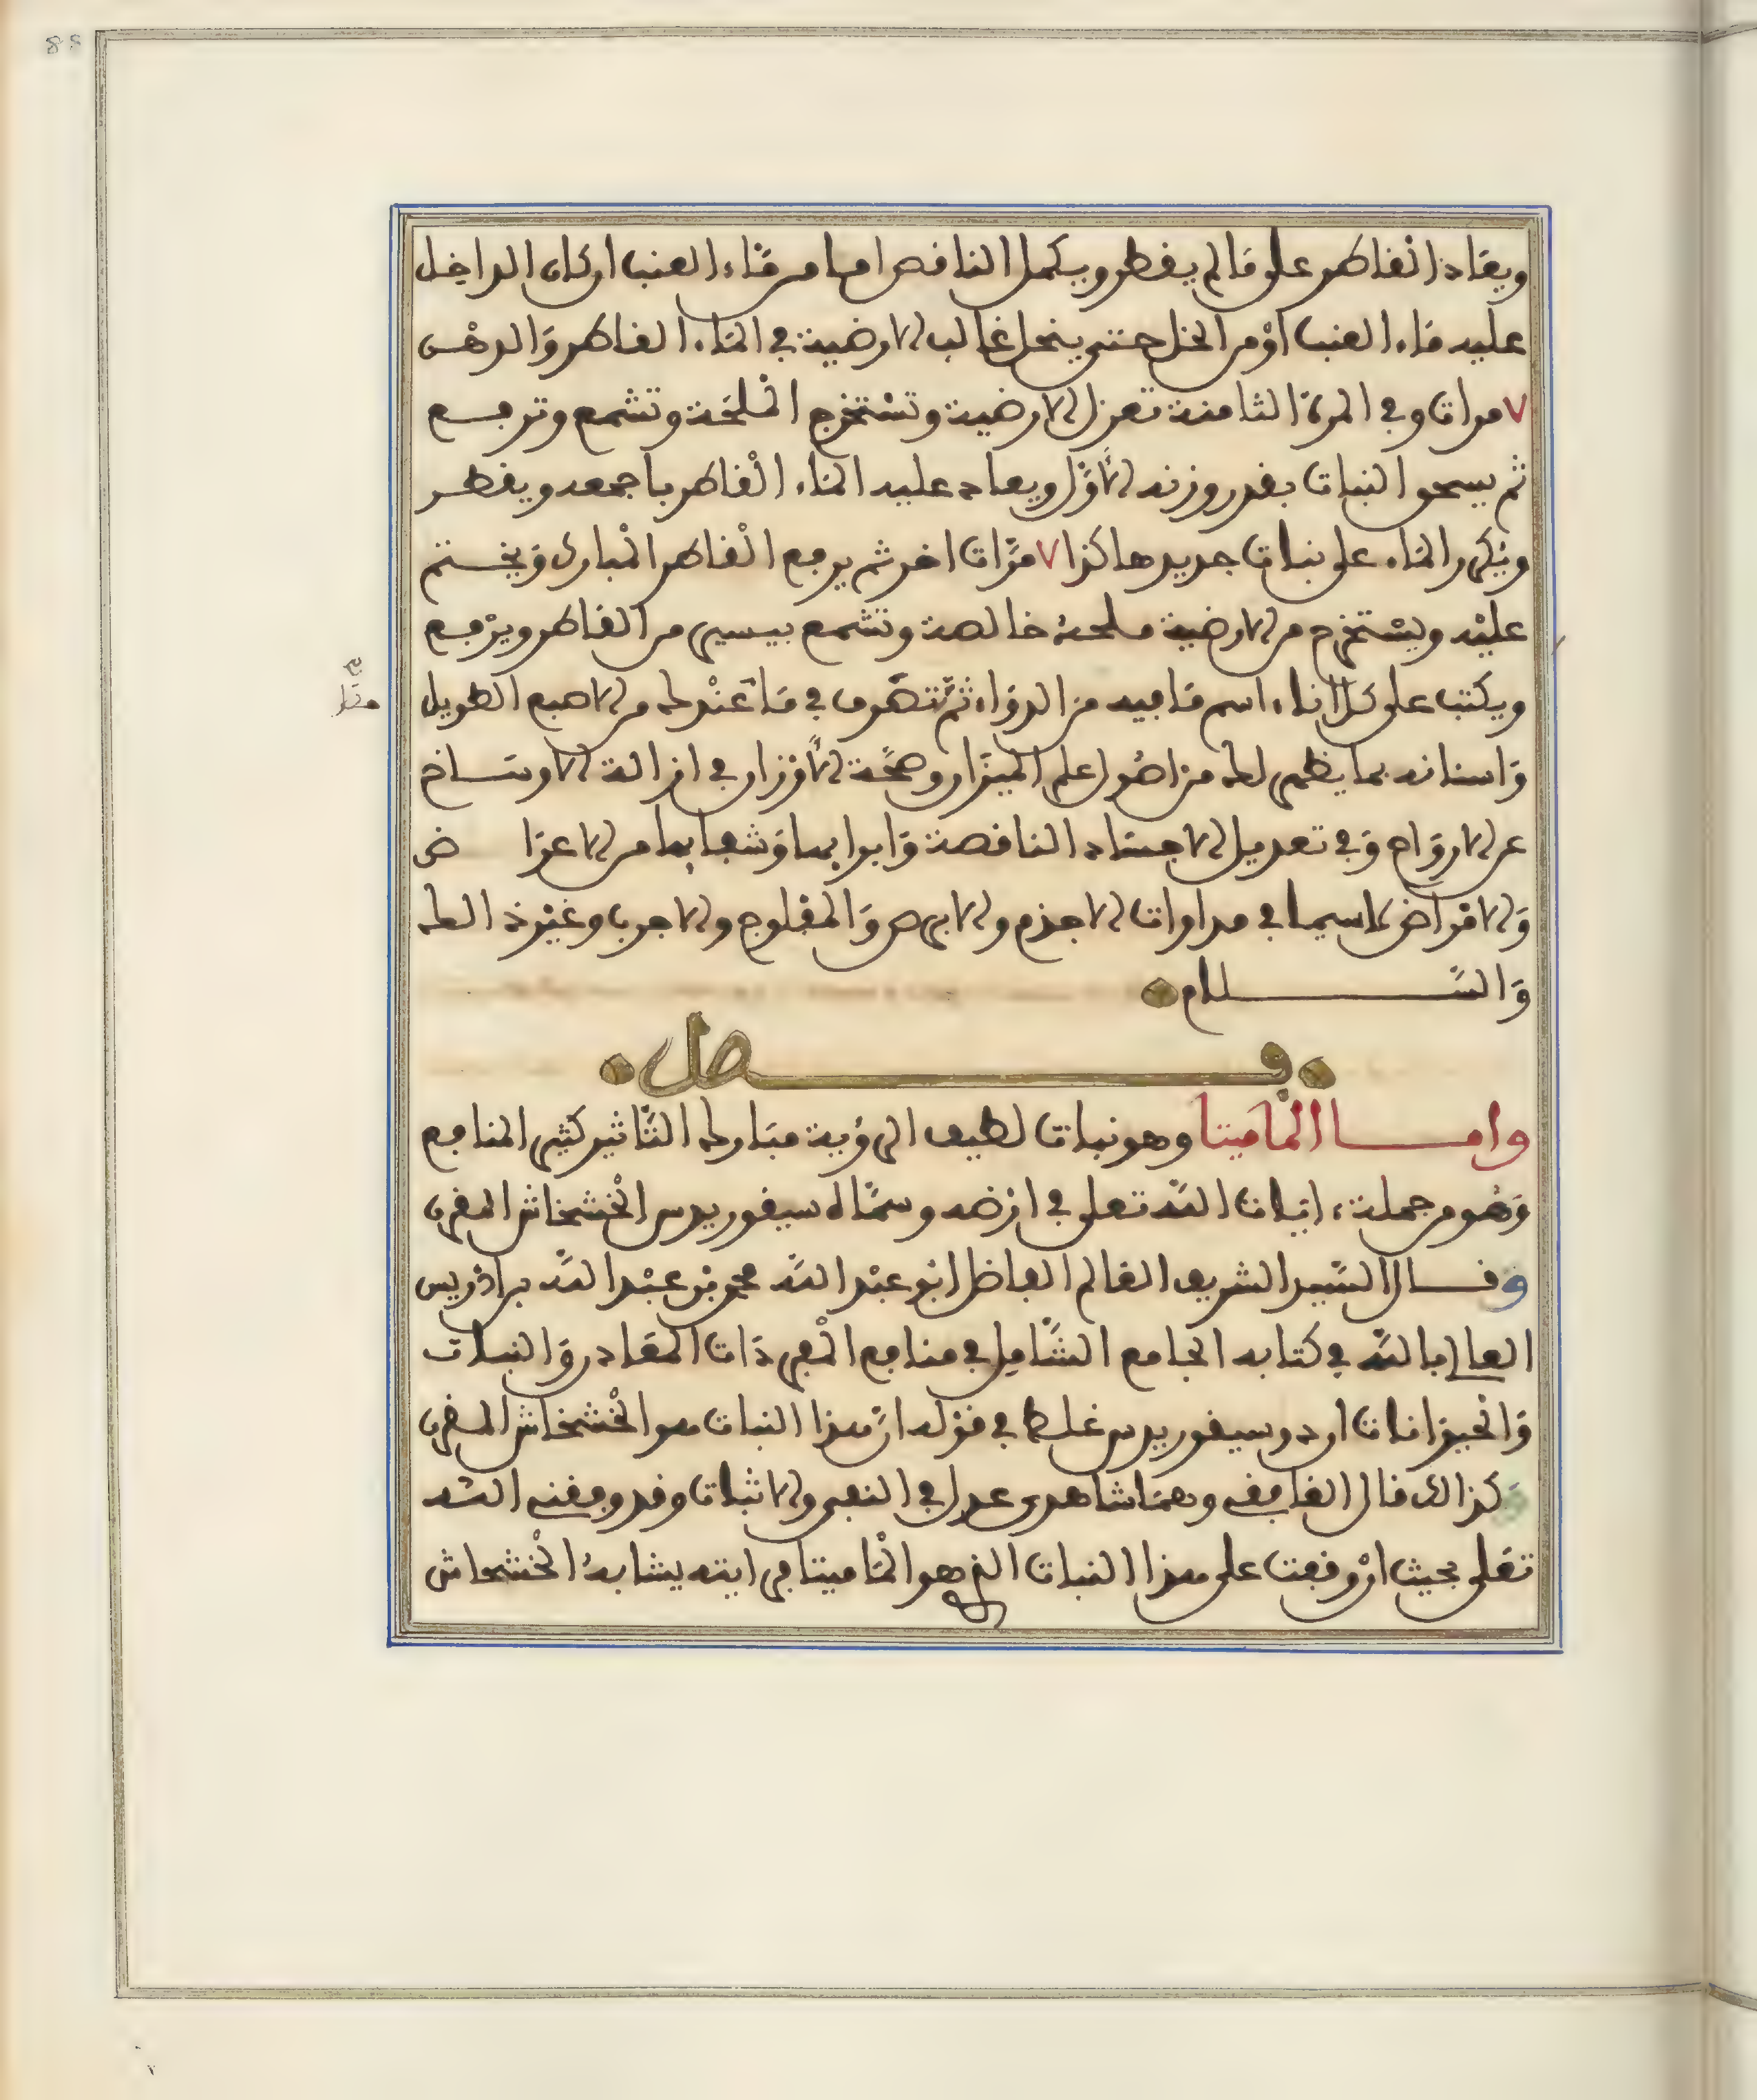 ويعاد القاطر على ما لم يقطر ويكمل الناقص اما من ماء العنب ان كان الداخل
عليه ماء العنب أو من الخل حتى ينحل غالب الارضية في الماء القاطر والدهن
٧ مرات وفي المرة الثامنة تعزل الارضية وتستخرج الملحة وتشمع وترفع
ثم يسحق النبات بقدر وزنه الأول ويعاد عليه الماء القاطر باجمعه ويقطر
ويكرر الماء على نبات جديد هاكذا ٧ مرات اخر ثم يرفع القاطر المبارك ويختم
عليه ويستخرج من الارضية ملحة خالصة وتشمع بيسير من القاطر ويرفع
ويكتب على كل اناء اسم ما فيه من الدواء ثم تتصرف في ما عندك من الاصبع الطويل
واسنانه بما يظهر لك من اصول علم الميزان وصحة الأوزان في ازالة الاوساخ
عن الارواح وفي تعديل الاجساد الناقصة وابرايها وشفايها من الاعراض
والامراض لاسيما في مداوات الاجذم والابرص والمفلوج والاجرب وغير ذالك
والسلام
فصل
واما الماميتا وهو نبات لطيف الرؤية مبارك التأثير كثير المنافع
وهو من جملة ايات الله تعلى في ارضه وسماه سيقوريدس الخشخاش المقرن
وقال السيد الشريف العالم الفاضل ابو عبد الله محمد بن عبد الله بن ادريس
العالي بالله في كتابه الجامع الشامل في منافع المفردات المعادن والنبات
والحيوانات ان دوسيقوريدس غلط في قوله ان هذا النبات هو الخشخاش المقرن
كذالك قال الغافقي وهما شاهدي عدل في النفي والاثبات وقد وفقني الله
تعلى بحيث ان وقفت على هذا النبات الذي هو الماميتا فرايته يشابه الخشخاش